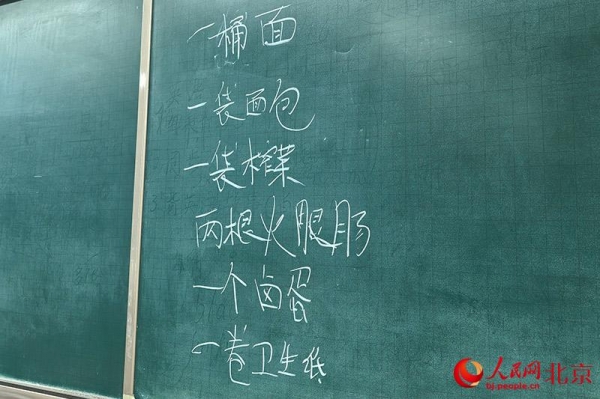 一桶面
一袋面包
一袋榨菜
两根火腿肠
一个卤蛋
一卷卫生纸
人民网 北京
bj.people.cn